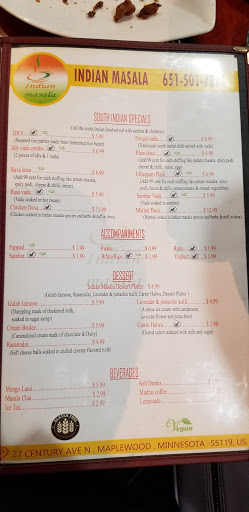 Indian
masala
INDIAN MASALA
651-501-78
SOUTH INDIAN SPECIALS
(All the south Indian food served with sambar & chutney)
IDLY
$ 5.99
(Steamed rice patties made from fermented rice batter)
Idly vada combo
$ 6.99
(2 pieces of Idly & 1 vada)
Rava dosa
$ 8.99
(Add 99 cent for each stuffing like potato masala,
spicy podi, cheese & chilli, onion)
Rasa vada
$ 5.99
(Vada soaked in hot rasam)
Chicken Dosa
$ 13.99
(Chicken cooked in Indian masala
Pongal vada
$ 8.99
(Traditional south Indian dish served with vada)
Plain dosa
$ 7.99
(Add 99 cent for each stuffing like potato masala, spicy podi,
cheese & chilli, onion, egg)
Uthappam Plain
$ 8.99
(Add 99 cent for each stuffing like potato masala, spicy podi,
Sambar Vada
$ 5.99
(Vada soaked in hot sambar)
Mutton Dosa
$ 13.99
ACCOMPANIMENTS
Pappad
$ 1.99
Sambar
$ 1.99
Pickle
White Rice
Raita
$ 1.99
Yoghurt
$ 1.99
DESSERT
Indian Masala Dessert Platter
$ 6.99
(Gulab Jamoon, Rasamalai, Lavender & pistachio kulfi, Carrot Halwa, Dessert Platter)
Gulab Jamoon
$ 3.99
(Dumpling made of thickened milk,
soaked in sugar syrup)
Cream Brulee
$ 3.99
Rasamalai
$ 3.99
(Soft cheese balls soaked in chilled creamy flavored milk)
Lavender & pistachio kulfi
$ 3.99
(A dense ice cream with cardamom,
lavender flavor and pistachios)
Carrot Halwa
$ 3.99
(Grated carrot reduced with milk and sugar)
BEVERAGES
Mango Lassi
$ 3.99
Masala Chai
$ 2.99
Ice Tea
$ 2.99
Soft Drinks
Madras coffee
Lemonade
GLUTEN FREE
Vegan
27 CENTURY AVE N., MAPLEWOOD, MINNESOTA -55119, US